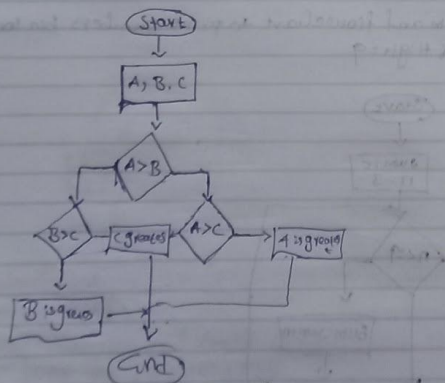 Start
A, B, C
A>B
B>C
C greates
A>C
A is greates
B is greates
End